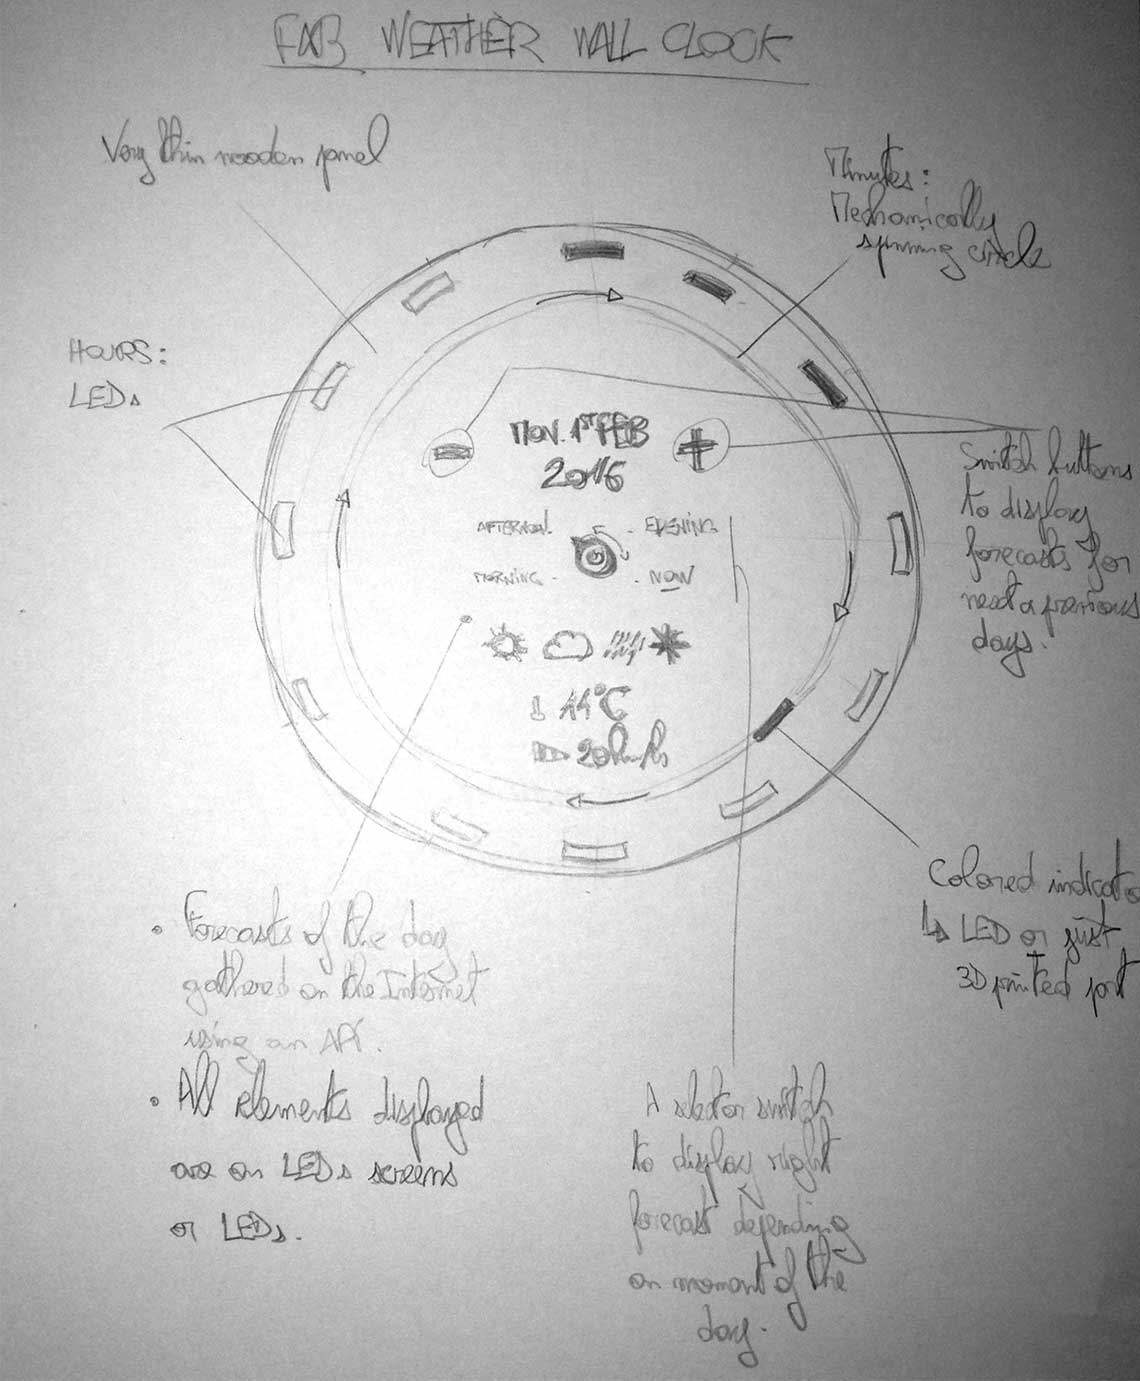 FAB WEATHER WALL CLOCK
Very thin wooden panel
Minutes:
Mechanically
spinning circle
HOURS:
LEDs
MON. 1ST FEB
2016
- +
AFTERNOON. . EVENING
MORNING - . NOW
11°C
20km/h
Switch buttons
to display
forecasts for
next or previous
days.
Colored indicato
↳ LED or just
3D printed part
• Forecasts of the day
gathered on the Internet
using an API.
• All elements displayed
are on LEDs screens
or LEDs.
A selector switch
to display right
forecast depending
on moment of the
day.